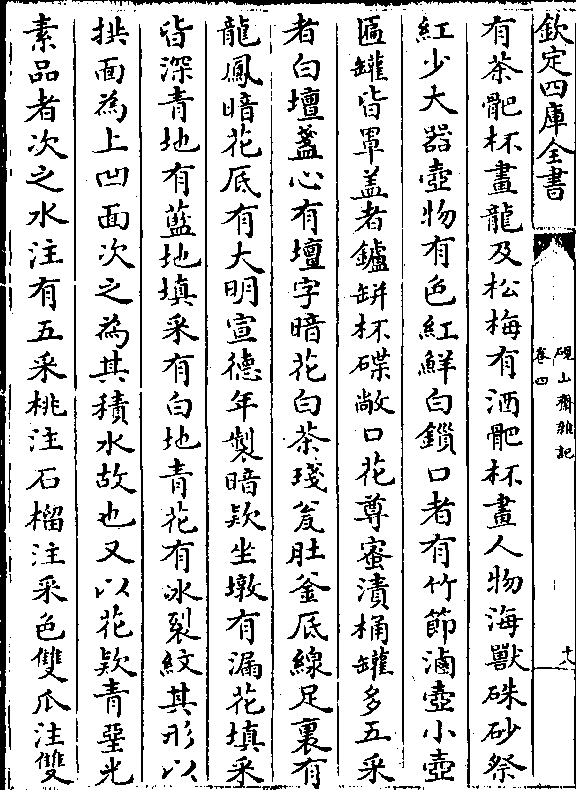 欽定四庫全書
硯山齋雜記
卷四
十八
有茶靶杯畫龍及松梅有酒靶杯畫人物海獸硃砂祭
紅少大器壺物有色紅鮮白鎖口者有竹節滷壺小壺
匾罐皆罩盖者鑪缾杯碟敞口花尊蜜漬桶罐多五采
者白壇盞心有壇字暗花白茶琖瓮肚釜底線足裏有
龍鳳暗花底有大明宣德年製暗欵坐墩有漏花填采
皆深青地有藍地填采有白地青花有氷裂紋其形以
拱面為上凹面次之為其積水故也又以花欵青瑩光
素品者次之水注有五采桃注石榴注采色雙瓜注雙